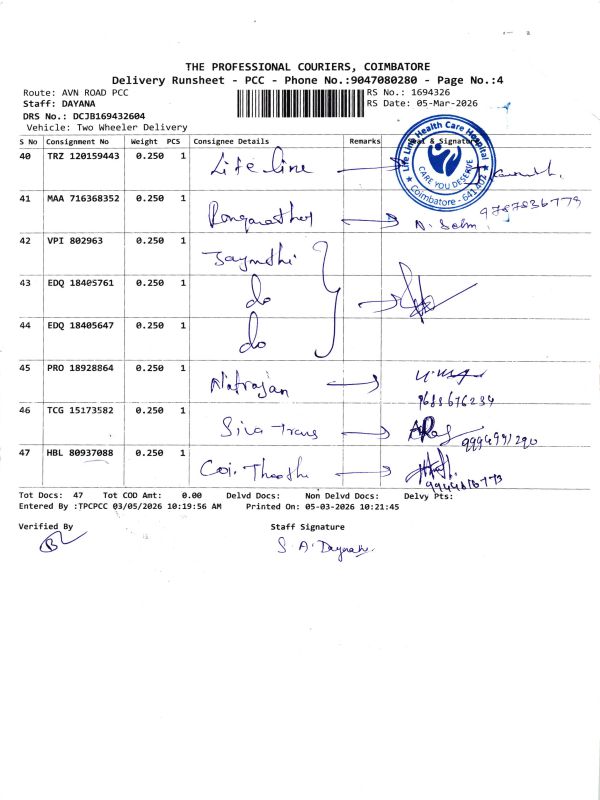 THE PROFESSIONAL COURIERS, COIMBATORE
Delivery Runsheet - PCC - Phone No.:9047080280 - Page No.:4
Route: AVN ROAD PCC
RS No.: 1694326
Staff: DAYANA
RS Date: 05-Mar-2026
DRS No.: DCJB169432604
Vehicle: Two Wheeler Delivery
S No Consignment No Weight PCS Consignee Details Remarks Seal & Signature
40 TRZ 120159443 0.250 1 Life line
Life Line Health Care Hospital
CARE YOU DESERVE
Coimbatore - 641 402
41 MAA 716368352 0.250 1
9787836779
42 VPI 802963 0.250 1 Jaynthi
43 EDQ 18405761 0.250 1 do
44 EDQ 18405647 0.250 1 do
45 PRO 18928864 0.250 1 Natrajan
9688676234
46 TCG 15173582 0.250 1 Siva Trans
9994991290
47 HBL 80937088 0.250 1 Coi.
Tot Docs: 47 Tot COD Amt: 0.00 Delvd Docs: Non Delvd Docs: Delvy Pts:
Entered By :TPCPCC 03/05/2026 10:19:56 AM Printed On: 05-03-2026 10:21:45
Verified By Staff Signature